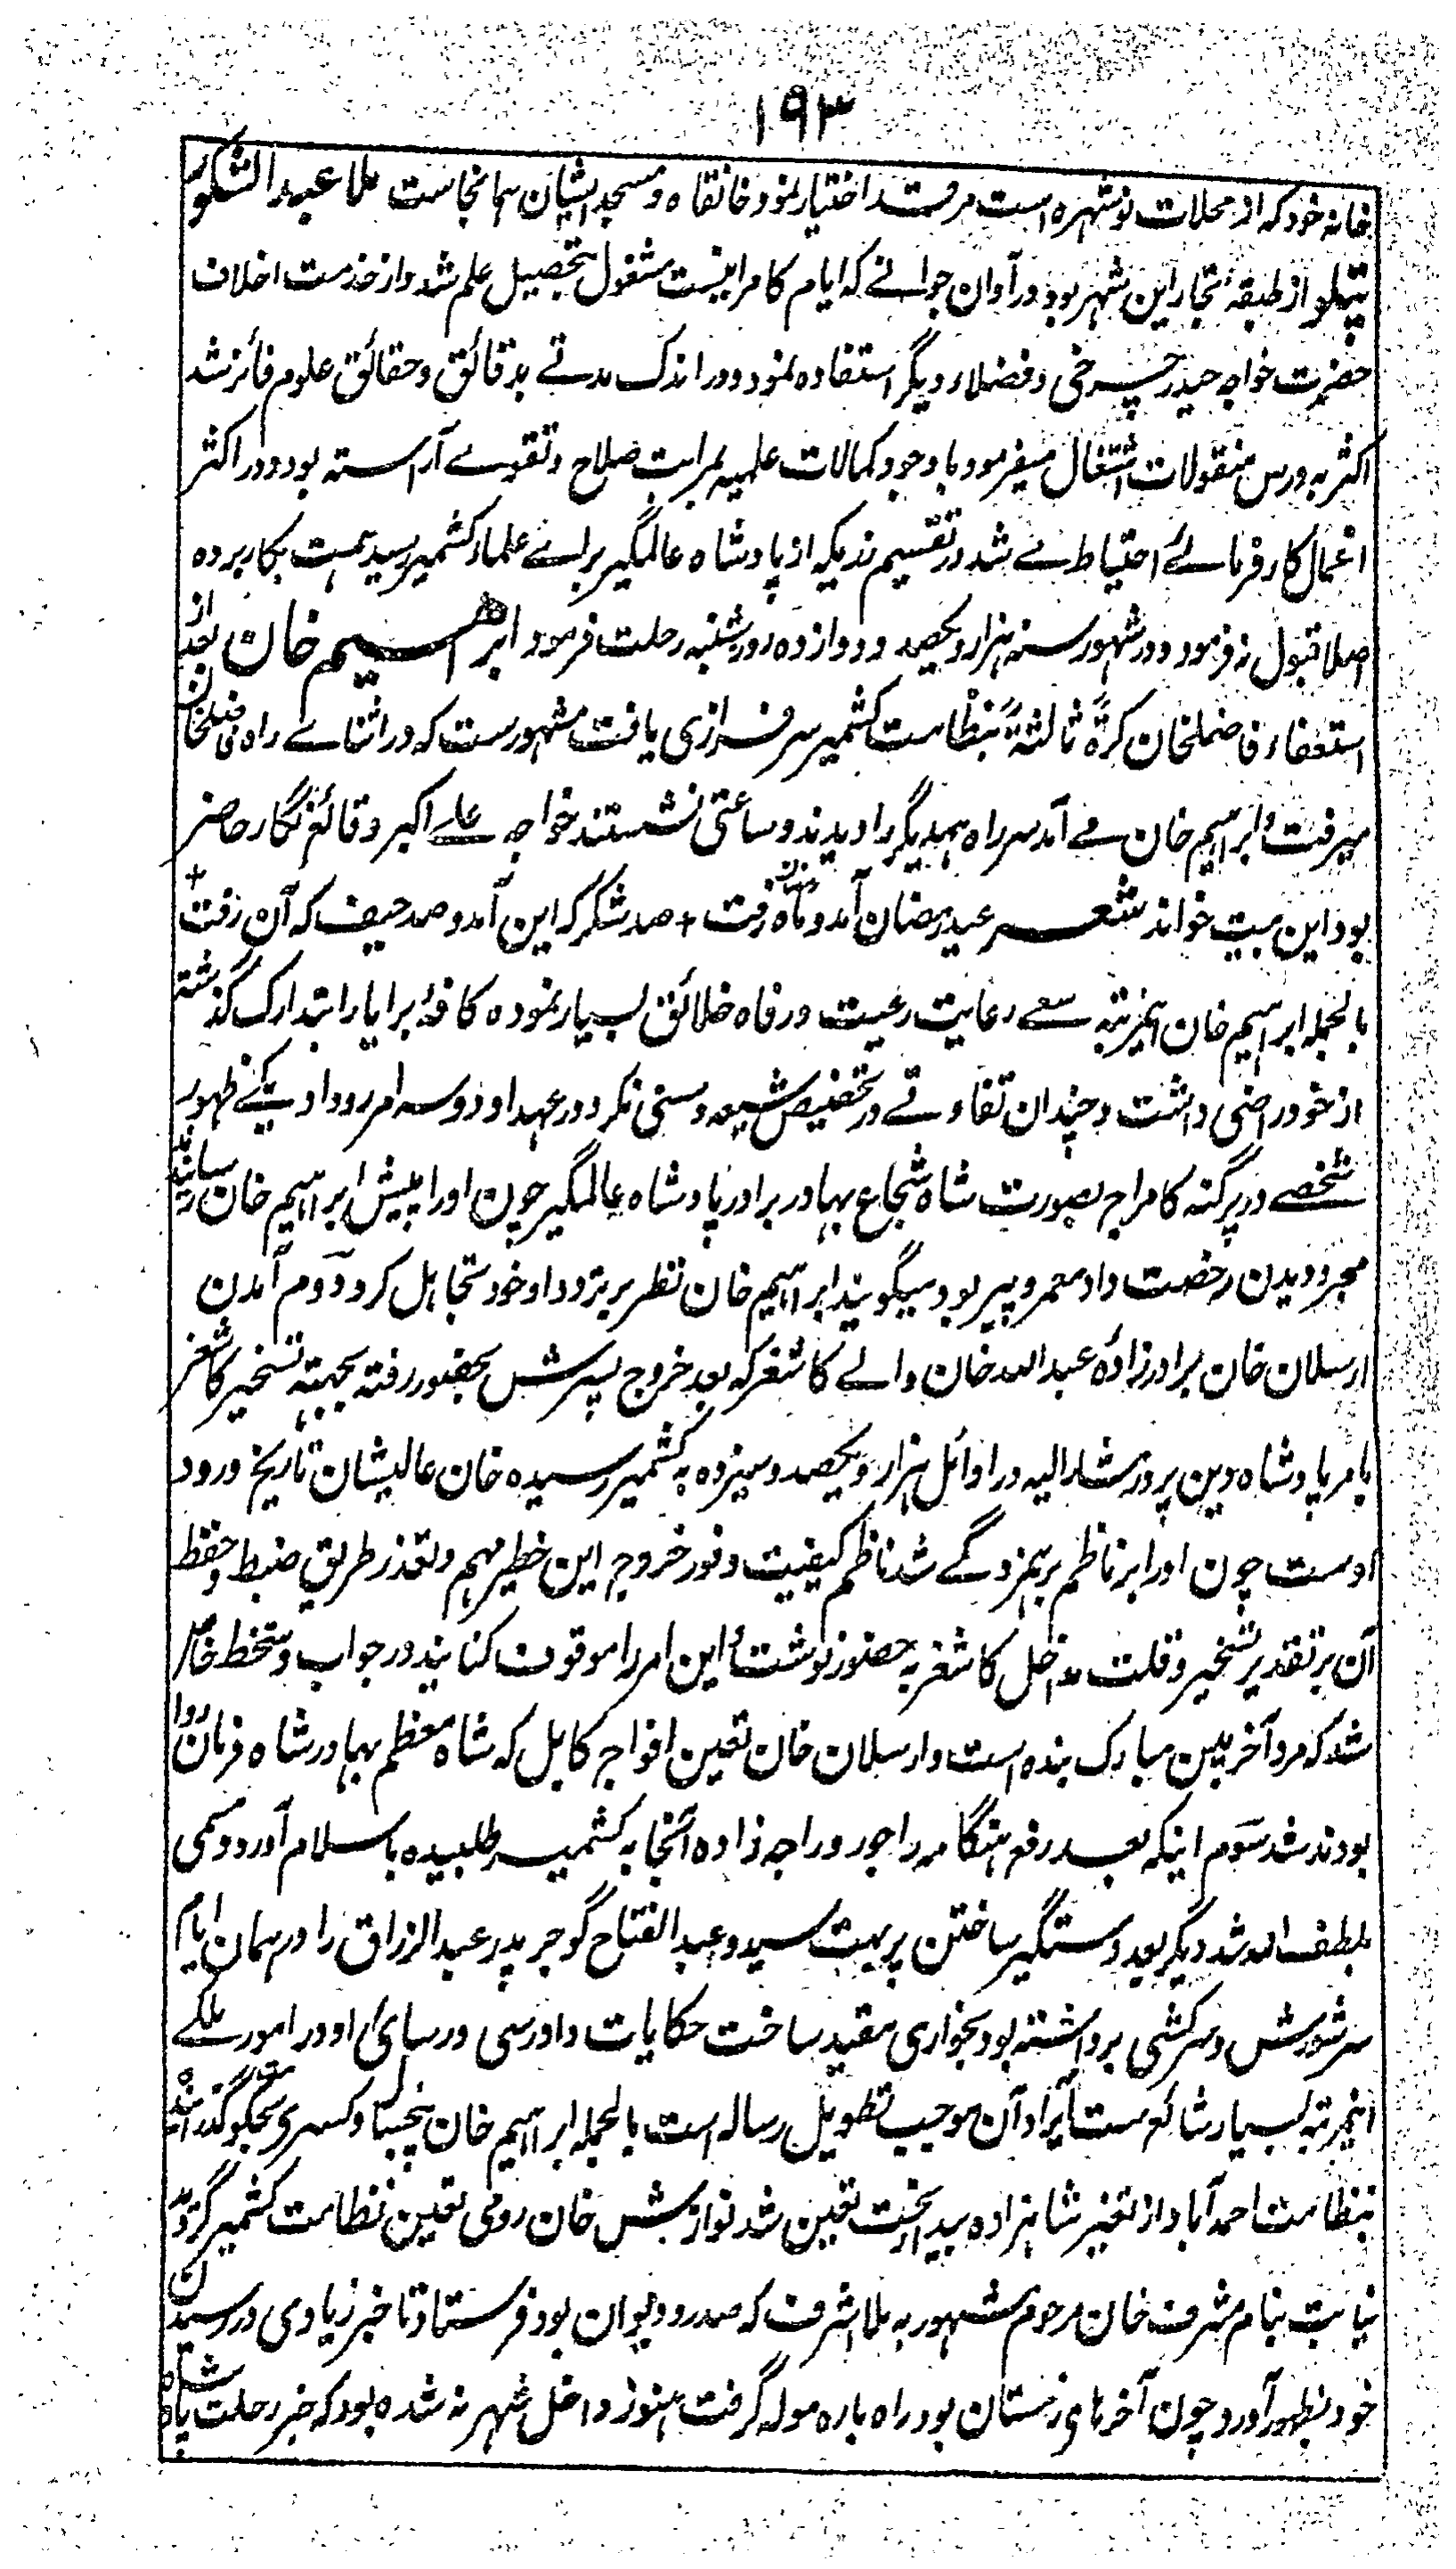 ۱۹۳
بخانه خود که از محلات نوشهره است مرقد اختیار نمود خانقاه و مسجد ایشان همانجاست ملا عبدالشکور
پتهلو از طبقهٔ تجار این شهر بود در آوان جوانے که ایام کامرانیست مشغول تحصیل علم شد و از خدمت اخلاف
حضرت خواجه حیدر چرخی و فضلاء دیگر استفاده نمود و در اندک مدتے بدقائق و حقائق علوم فائز شد
اکثر به درس منقولات اشتغال میفرمود با وجود کمالات علمیه بمراتب صلاح و تقوے آراسته بود و در اکثر
اعمال کار فرمائے احتیاط مے شد در تقسیم زریکه از پادشاه عالمگیر براے علماء کشمیر رسید همت بکار برده
اصلا قبول نفرمود و در شهور سنه هزار و یکصد و دوازده روز شنبه رحلت فرمود ابراهیم خان بعد از
استعفاء فاضلخان کرةً ثالثةً بنظامت کشمیر سرفرازی یافت مشهورست که در اثناے راه فاضلخان
میرفت و ابراهیم خان مے آمد سر راه همدیگر را دیدند و ساعتی نشستند خواجه علے اکبر وقائع نگار حاضر
بود این بیت خواند شعر عید رمضان آمد و ماه رمضان رفت + صد شکر که این آمد و صد حیف که آن رفت +
بالجمله ابراهیم خان اینمرتبه سعے رعایت رعیت و رفاه خلائق بسیار نموده کافهٔ برایا را بتدارک گذشته
از خود راضی داشت و چندان تفاوتے در تخصیص شیعه و سنی نکرد در عهد او دو سه امر رو داد یکے ظهور
شخصے در پرگنه کامراج بصورت شاه شجاع بهادر برادر پادشاه عالمگیر چون او را پیش ابراهیم خان رسانیدند
مجرد دیدن رخصت داد معمر و پیر بود میگویند ابراهیم خان نظر بر تردد او خود تجاهل کرد دوم آمدن
ارسلان خان برادرزادهٔ عبدالله خان والے کاشغر که بعد خروج پسرش بحضور رفته بجهته تسخیر کاشغر
بامر پادشاه دین پرور مشار الیه در اوائل هزار و یکصد و سیزده به کشمیر رسیده خان عالیشان تاریخ ورود
اوست چون او را بر ناظم برهمزدگے شد ناظم کیفیت وفور خروج این خطیر مهم و تعذر طریق ضبط و حفظ
آن بر تقدیر تسخیر و قلت مداخل کاشغر به حضور نوشت این امر را موقوف کنانید در جواب دستخط خاص
شد که مرد آخر بین مبارک بنده است و ارسلان خان تعین افواج کابل که شاه معظم بهادر شاه فرمان روا
بودند شد سوم اینکه بعد رفع هنگامه راجور و راجه زاده آنجا به کشمیر طلبیده باسلام آورد و مسمی
بلطف الله شد دیگر بعد دستگیر ساختن پربهت سید و عبدالفتاح گوجر پدر عبدالرزاق را در همان ایام
سر شورش و سرکشی برداشته بود بخواری مقید ساخت حکایات دادرسی و رسائی او در امور ملکے
اینمرتبه بسیار شائع ست ایراد آن موجب تطویل رساله است بالجمله ابراهیم خان پنجسال و کسری بحکومت گذرانیده
بنظامت احمدآباد از تغیر شاهزاده بیدار بخت تعین شد نوازش خان رومی تعین نظامت کشمیر گردید
نیابت بنام مشرف خان مرحوم مشهور به ملا اشرف که صدر و دیوان بود فرستاد تا خبر زیادی در رسیدن
خود بظهور آورد چون آخرهای زمستان بود راه باره موله گرفت هنوز داخل شهر نه شده بود که خبر رحلت پادشاه